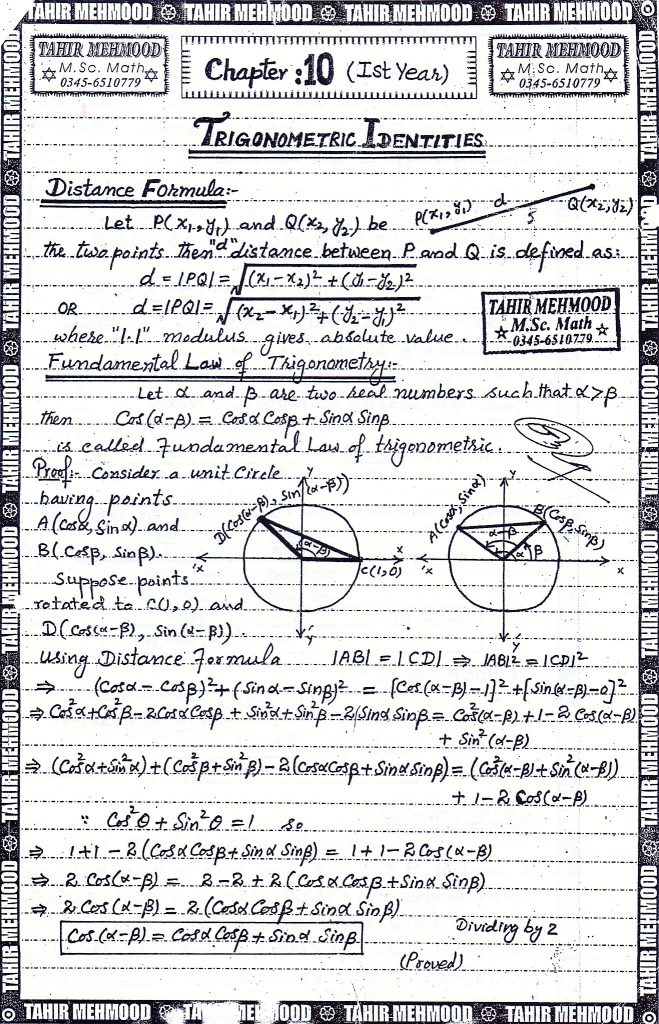 TAHIR MEHMOOD TAHIR MEHMOOD TAHIR MEHMOOD TAHIR MEHMOOD
TAHIR MEHMOOD
M.Sc. Math
0345-6510779
Chapter :10 (Ist Year)
TAHIR MEHMOOD
M.Sc. Math
0345-6510779
TRIGONOMETRIC IDENTITIES
Distance Formula:-
P(x₁,y₁) d Q(x₂,y₂)
Let P(x₁,y₁) and Q(x₂,y₂) be
the two points then "d" distance between P and Q is defined as:
d = |PQ| = √(x₁-x₂)² + (y₁-y₂)²
OR d = |PQ| = √(x₂-x₁)² + (y₂-y₁)²
TAHIR MEHMOOD
M.Sc. Math
0345-6510779
where "|·|" modulus gives absolute value.
Fundamental Law of Trigonometry:-
Let α and β are two real numbers such that α>β
then Cos(α-β) = Cosα Cosβ + Sinα Sinβ
is called Fundamental Law of trigonometric.
Proof:- Consider a unit Circle
having points
A(Cosα, Sinα) and
B(Cosβ, Sinβ).
Suppose points
rotated to C(1,0) and
D(Cos(α-β), Sin(α-β)).
D(Cos(α-β), Sin(α-β))
y
α-β
x' x
C(1,0)
y'
A(Cosα, Sinα) y B(Cosβ, Sinβ)
α-β
α β
x' x
y'
Using Distance Formula |AB| = |CD| ⇒ |AB|² = |CD|²
⇒ (Cosα - Cosβ)² + (Sinα - Sinβ)² = [Cos(α-β)-1]² + [Sin(α-β)-0]²
⇒ Cos²α + Cos²β - 2CosαCosβ + Sin²α + Sin²β - 2SinαSinβ = Cos²(α-β) + 1 - 2Cos(α-β)
+ Sin²(α-β)
⇒ (Cos²α + Sin²α) + (Cos²β + Sin²β) - 2(CosαCosβ + SinαSinβ) = (Cos²(α-β) + Sin²(α-β))
+ 1 - 2Cos(α-β)
∵ Cos²θ + Sin²θ = 1 so
⇒ 1+1 - 2(CosαCosβ + SinαSinβ) = 1+1-2Cos(α-β)
⇒ 2Cos(α-β) = 2-2+2(CosαCosβ + SinαSinβ)
⇒ 2Cos(α-β) = 2(CosαCosβ + SinαSinβ)
Dividing by 2
Cos(α-β) = CosαCosβ + Sinα Sinβ
(Proved)
TAHIR MEHMOOD TAHIR MEHMOOD TAHIR MEHMOOD TAHIR MEHMOOD
TAHIR MEHMOOD TAHIR MEHMOOD TAHIR MEHMOOD TAHIR MEHMOOD TAHIR MEHMOOD TAHIR MEHMOOD
TAHIR MEHMOOD TAHIR MEHMOOD TAHIR MEHMOOD TAHIR MEHMOOD TAHIR MEHMOOD TAHIR MEHMOOD